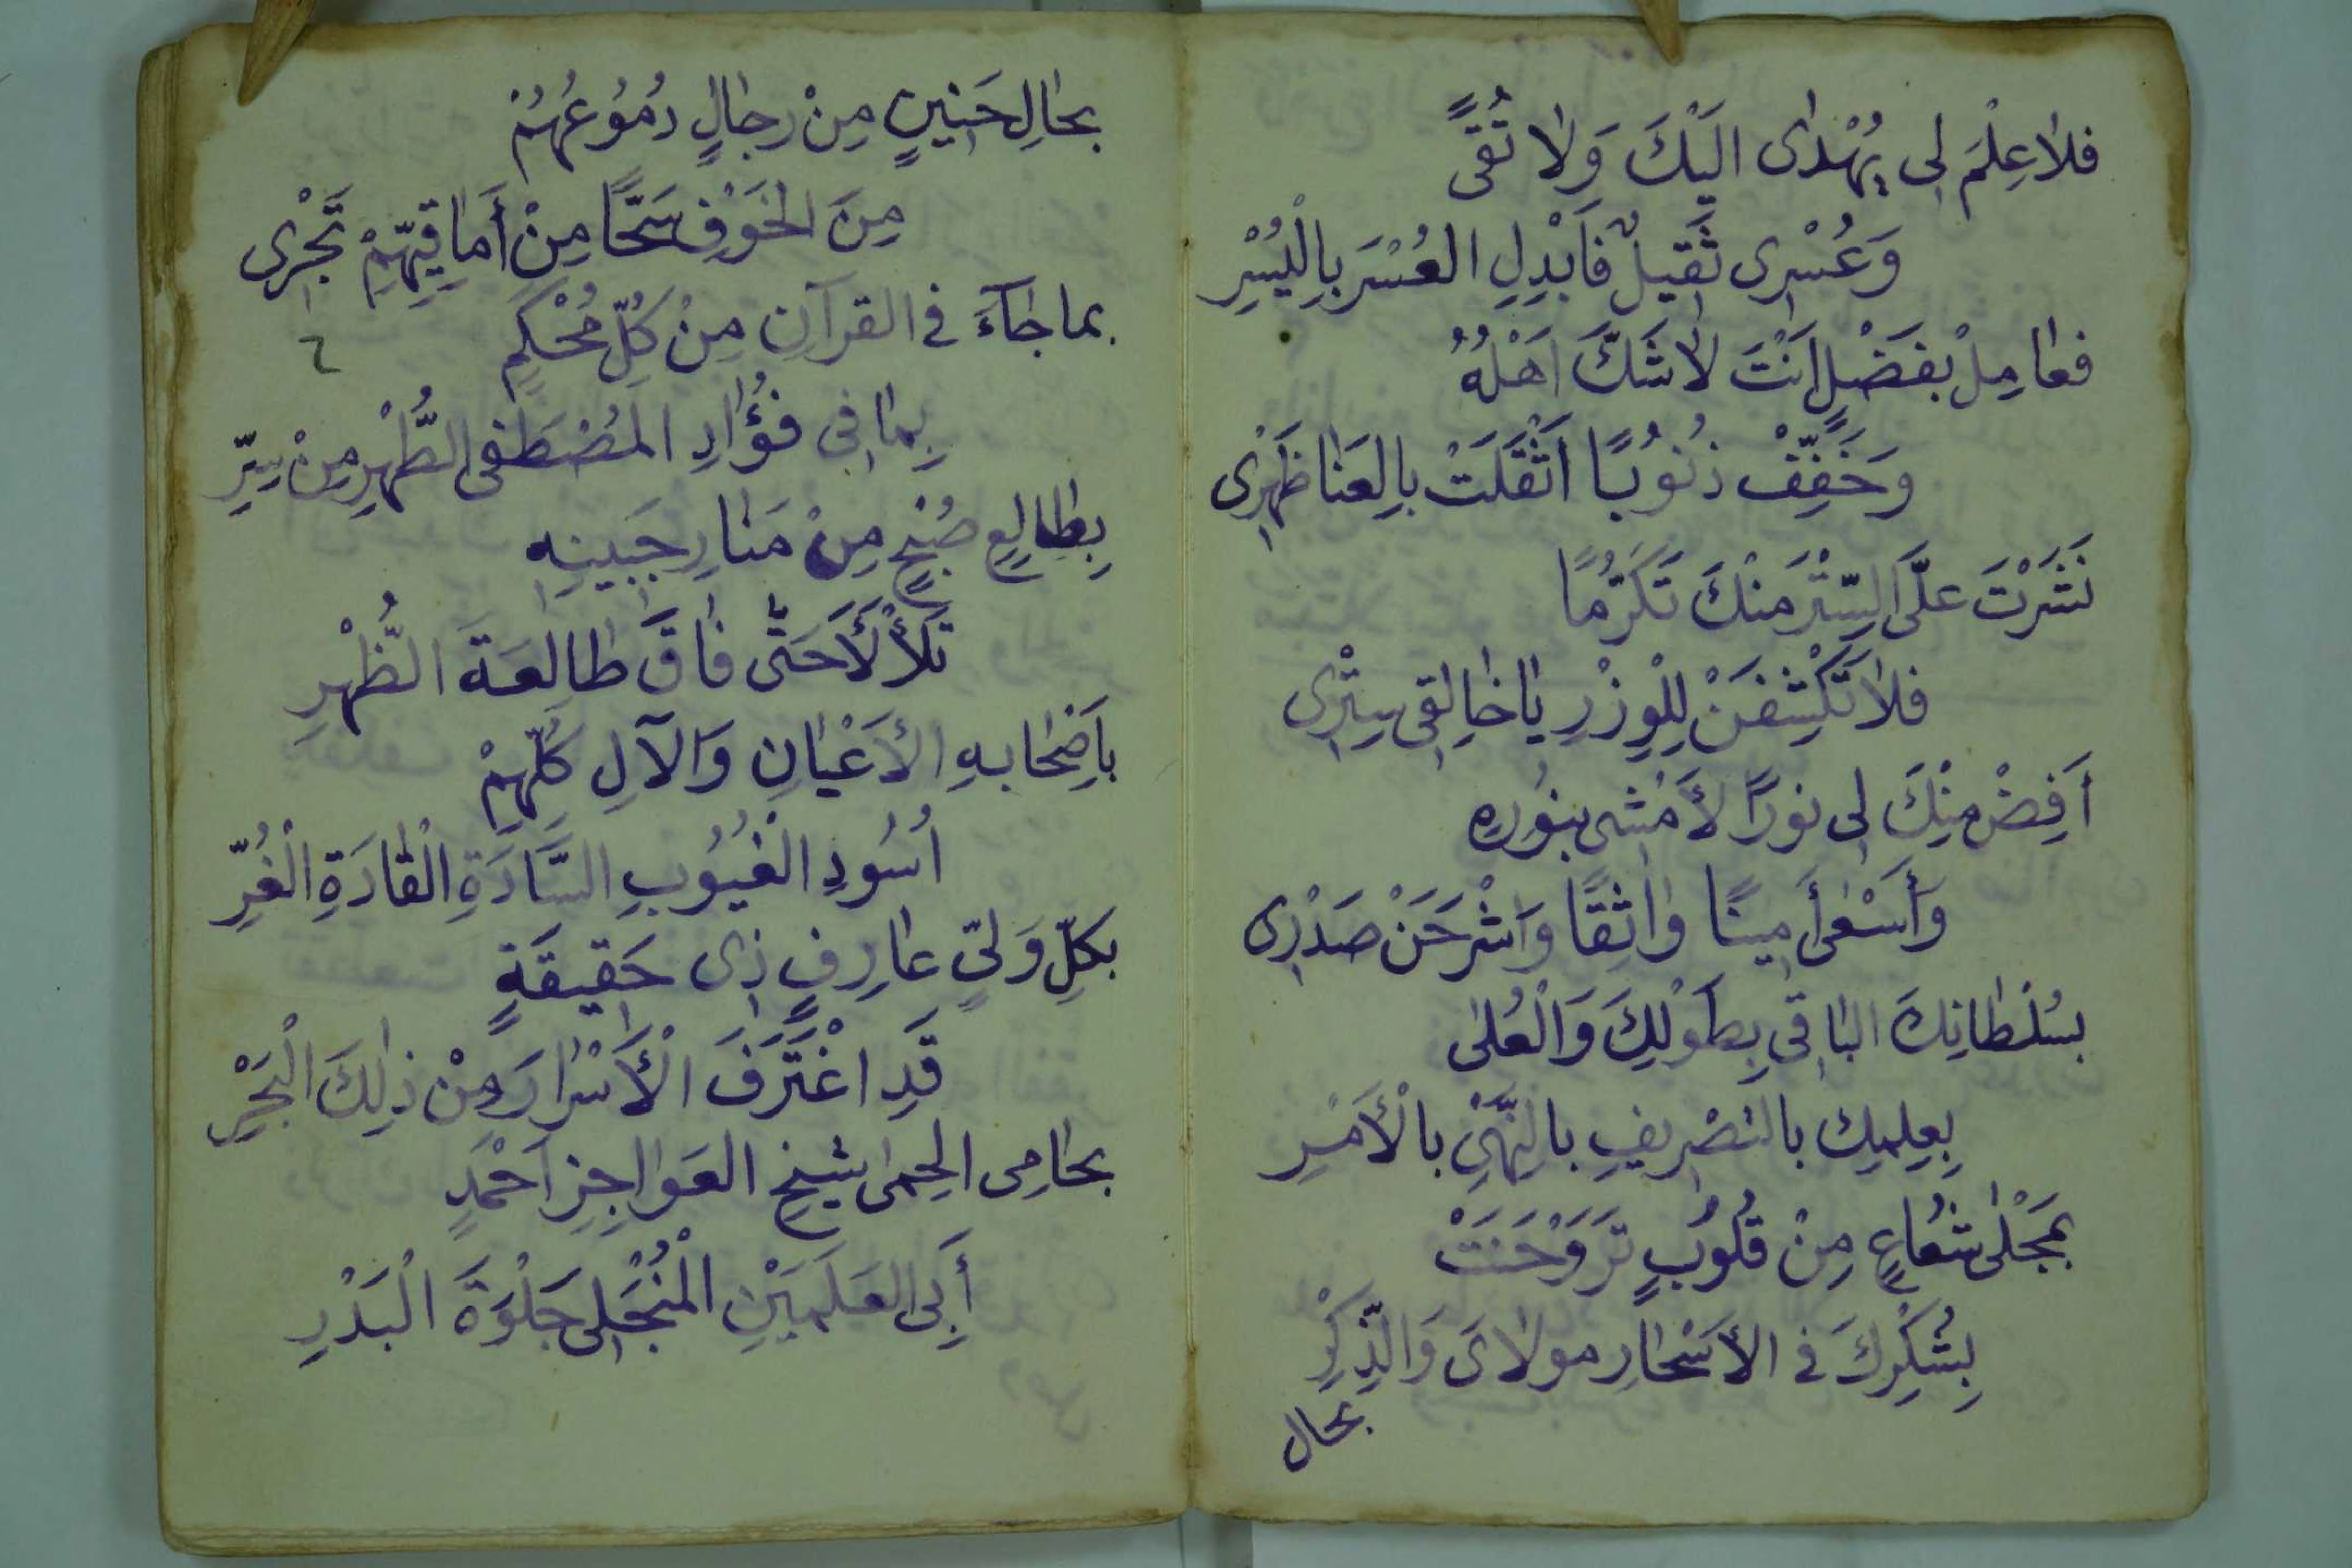 فلا عِلْمَ لى يُهْدٰى اليْكَ وَلا تُقًى
وَعُسْرِى ثَقيلٌ فَابْدِلِ العُسْرَ بِالْيُسْرِ
فعامِلْ بفَضْلٍ اَنْتَ لاشَكَّ اَهْلُهُ
وَخَفِّفْ ذُنُوبًا اَثْقَلَتْ بالِعَنا ظَهْرِى
نَشَرْتَ علَىَّ السِّتْرَ مَنْكَ تَكَرُّمًا
فلا تَكْشِفَنْ لِلْوِزْرِ يا خالِقى سِتْرِى
أَفِضْ مِنْكَ لى نورًا لأَمْشى بنُورِهِ
وَأَسْعٰى أَمينًا واثِقًا وَاشْرَحَنْ صَدْرِى
بسُلْطانِكَ الباقى بِطَوْلِكَ وَالْعُلىٰ
بِعِلمِكَ بالتصْرِيفِ بالنَّهْىِ بالْأَمْرِ
بمَجْلٰى شُعاعٍ مِنْ قُلُوبٍ تَرَوْحَنَتْ
بِشُكْرِكَ في الأَسْحارِ مولاىَ وَالذِّكْرِ
بحال
بحالِ حَنينٍ مِنْ رِجالٍ دُمُوعُهُمْ
مِنَ الخَوْفِ سَحًّا مِنْ أَماقيهِّمْ تَجْرِى
بما جاءَ في القرآنِ مِنْ كُلِّ مُحْكَمٍ
٦
بِما فى فُؤَادِ المُصْطَفى الطُّهْرِ مِنْ سِرِّ
بِطالِعِ صُبْحٍ مِنْ مَنارِ جَبينِهِ
تَلَأْلَأَ حَتّٰى فاقَ طالِعَةَ الظُّهْرِ
باَصْحابهِ الأَعْيانِ وَالآلِ كُلِّهِمْ
اُسُودِ الْغُيُوبِ السَّادَةِ الْقادَةِ الْغُرِّ
بكلِّ وَلىٍّ عارِفٍ ذى حَقيقَةٍ
قَدِ اغْتَرَفَ الْأَسْرارَ مِنْ ذٰلِكَ الْبَحْرِ
بحامِى الحِمٰى شيْخِ العَواجِزِ اَحْمَدٍ
أَبِى العَلَمَيْنِ الْمُنْجَلى جَلْوَةَ الْبَدْرِ